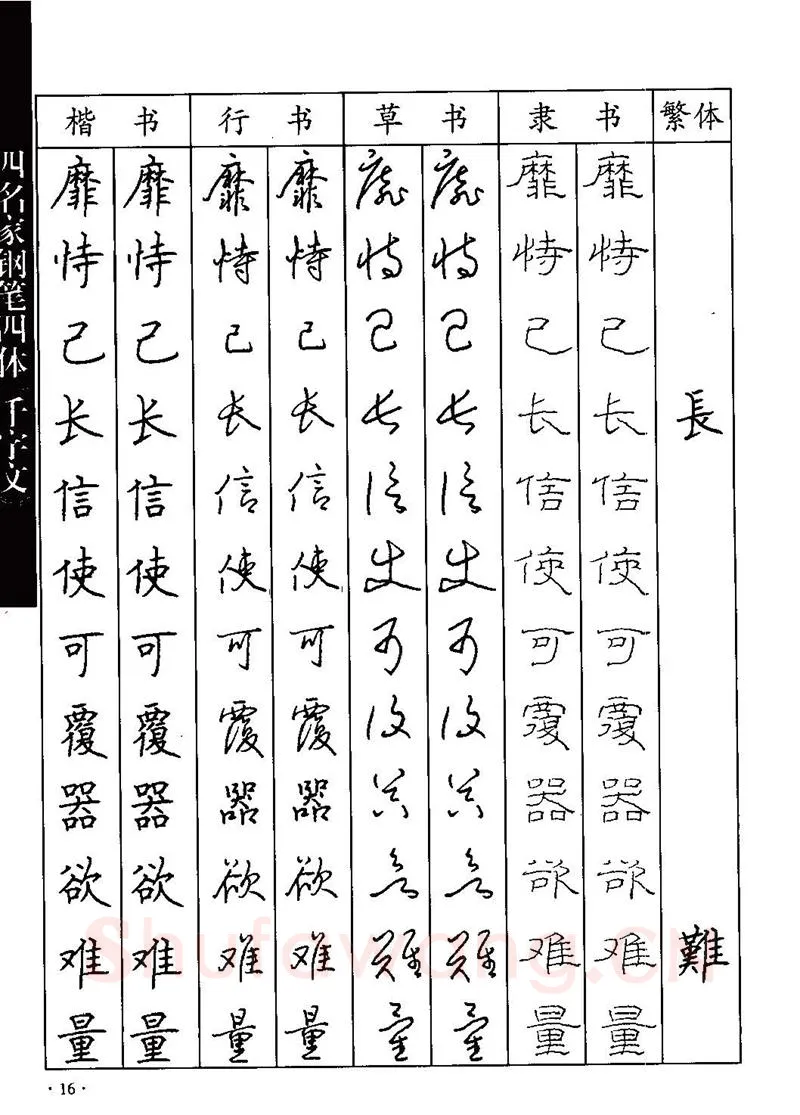 四名家钢笔四体千字文
楷书 行书 草书 隶书 繁体
靡 靡 靡 靡 靡 靡 靡 靡
恃 恃 恃 恃 恃 恃 恃 恃
己 己 己 己 己 己 己 己
长 长 长 长 长 长 长 长 長
信 信 信 信 信 信 信 信
使 使 使 使 使 使 使 使
可 可 可 可 可 可 可 可
覆 覆 覆 覆 覆 覆 覆 覆
器 器 器 器 器 器 器 器
欲 欲 欲 欲 欲 欲 欲 欲
难 难 难 难 难 难 难 难 難
量 量 量 量 量 量 量 量
·16·
Shufawang.CN